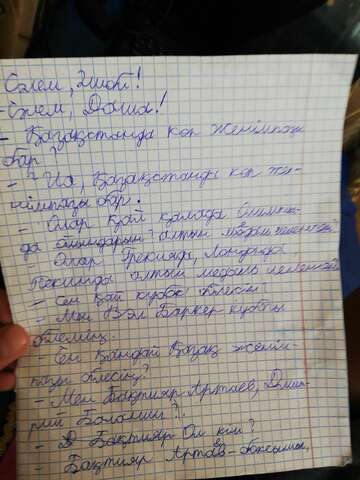 Сәлем, Эшоі!
- Сәлем, Даша!
- Қазақстанда көп жеңімпаз
бар?
- Иә, Қазақстанда көп же-
німпазы бар.
- Олар қай қалада Олимпиа-
да алтын медаль
Олар Грекияда, Лондонда
Пекинде алтын медаль иеленген
- Сен қай кубок білесің?
- Мен Вэл Баркер кубогы
білемін.
- Сен қандай қазақ жеңім-
пазы білесің?
- Мен Бақтияр Артаев, Дми-
рий Баландин.
- Бақтияр Ол кім?
- Бақтияр Артаев - боксшы,